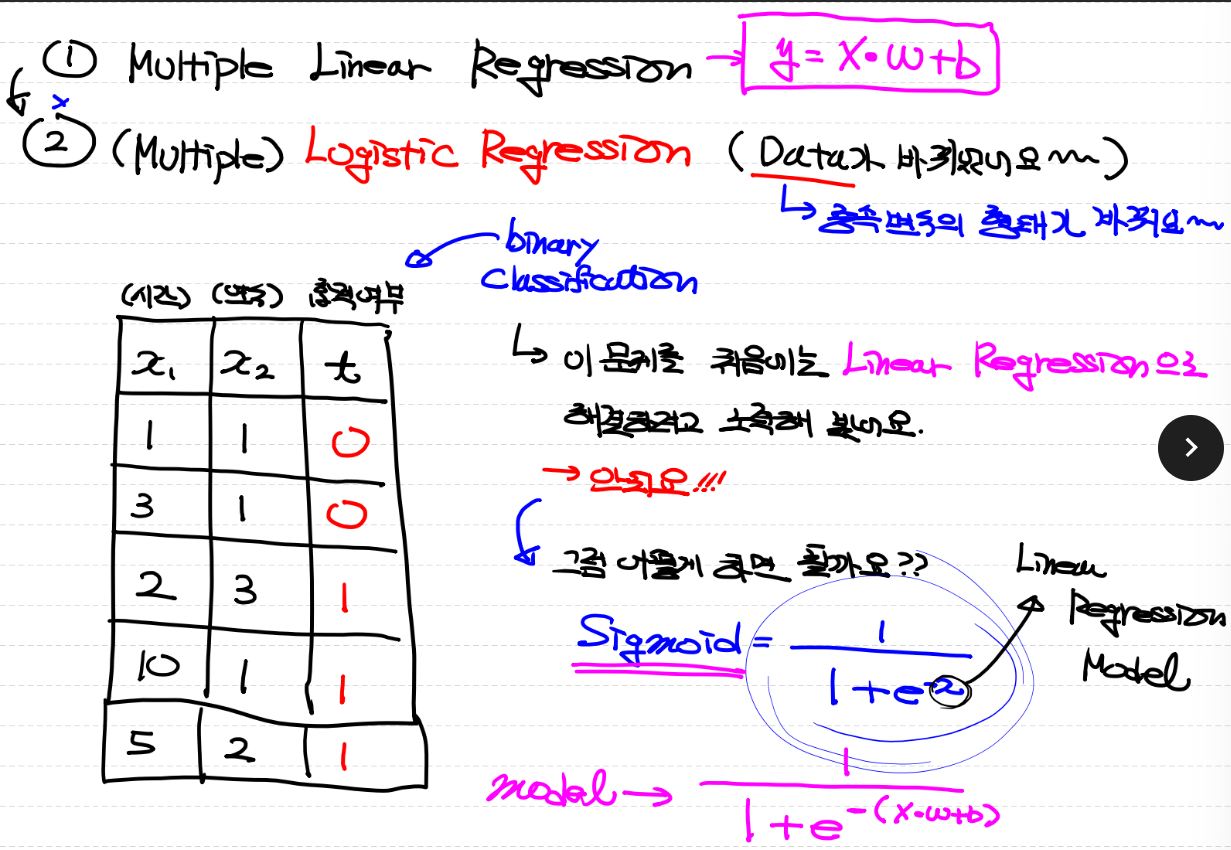 ① Multiple Linear Regression → y = X·W+b
② (Multiple) Logistic Regression (Data가 바뀌었네요~)
x
↳ 종속변수의 형태가 바뀌어요~
binary
classification
(시간) (연수) 합격여부
x₁ x₂ t
1 1 0
3 1 0
2 3 1
10 1 1
5 2 1
↳ 이 문제를 처음에는 Linear Regression으로
해결하려고 노력해 봤네요.
→ 안되요!!!
그럼 어떻게 하면 될까요??
Sigmoid = 1 / 1+e^-z
Linear
Regression
Model
model → 1 / 1+e^-(X·W+b)